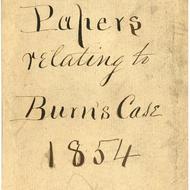 Papers
relating to
Burns Case
1854